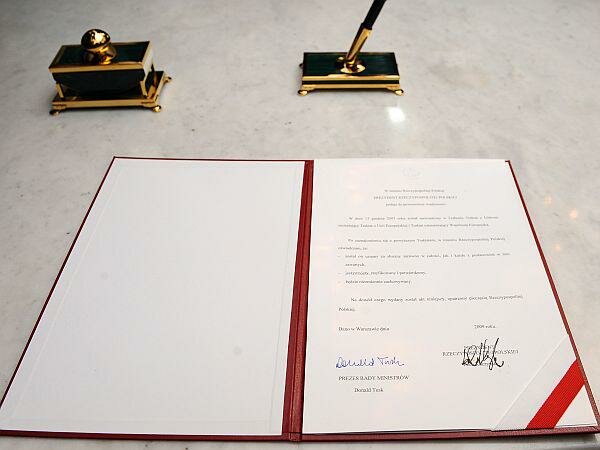 W imieniu Rzeczypospolitej Polskiej
PREZYDENT RZECZYPOSPOLITEJ POLSKIEJ
podaje do powszechnej wiadomości:
W dniu 13 grudnia 2007 roku został sporządzony w Lizbonie Traktat z Lizbony
zmieniający Traktat o Unii Europejskiej i Traktat ustanawiający Wspólnotę Europejską.
Po zaznajomieniu się z powyższym Traktatem, w imieniu Rzeczypospolitej Polskiej
oświadczam, że:
- został on uznany za słuszny zarówno w całości, jak i każde z postanowień w nim
zawartych,
- jest przyjęty, ratyfikowany i potwierdzony,
- będzie niezmiennie zachowywany.
Na dowód czego wydany został akt niniejszy, opatrzony pieczęcią Rzeczypospolitej
Polskiej.
Dano w Warszawie dnia 2009 roku.
PREZYDENT
RZECZYPOSPOLITEJ POLSKIEJ
Donald Tusk
PREZES RADY MINISTRÓW
Donald Tusk